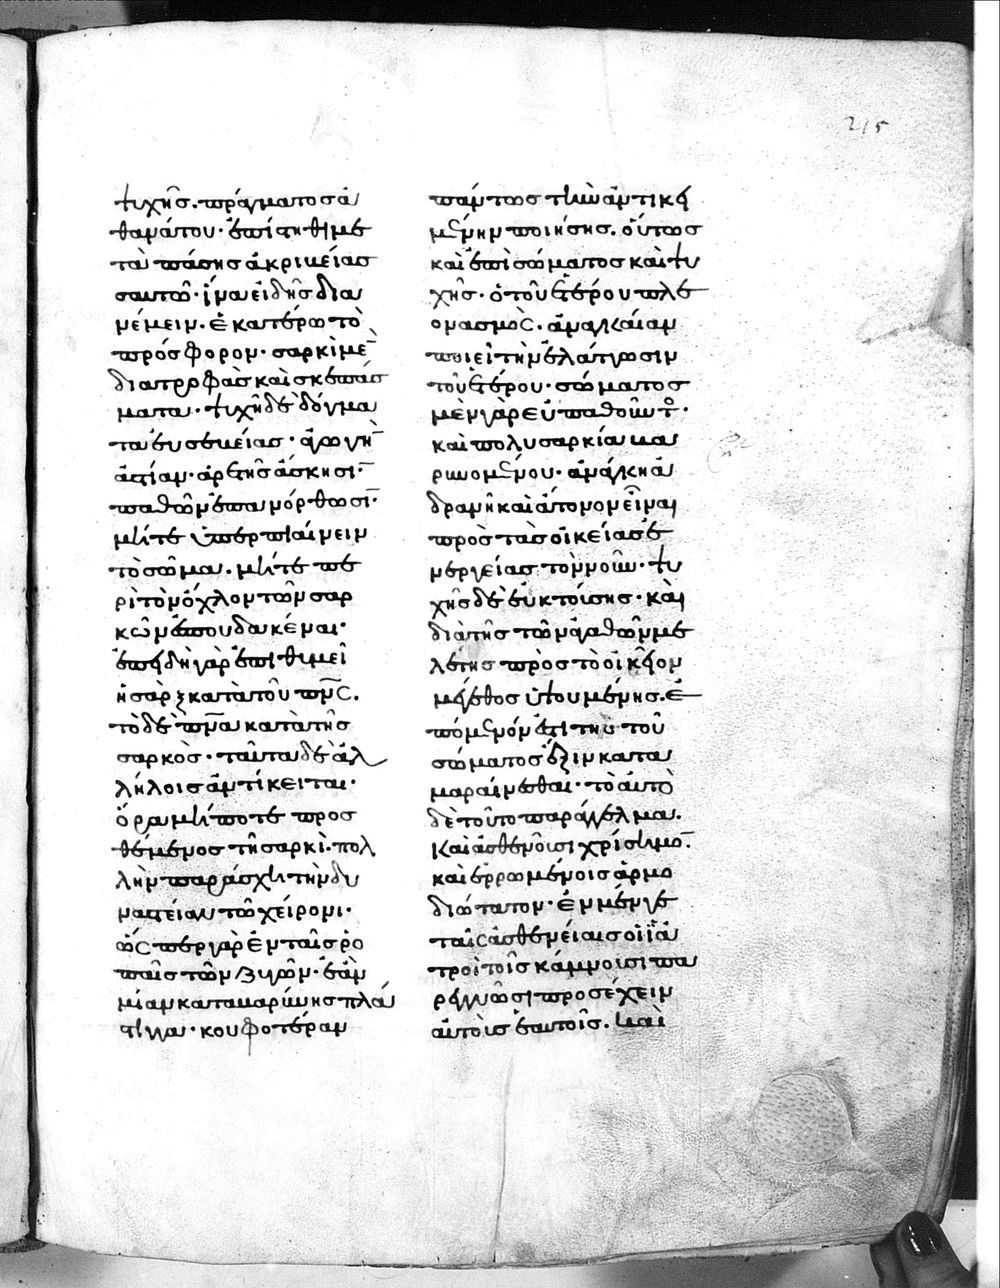 215
ψυχῆς. πράγματος ἀ
θανάτου· ἐπίστηθι με
τὰ πάσης ἀκριβείας
σαυτῶ· ἵνα εἰδῆς δια
νέμειν. ἑκατέρω τὸ
πρόσφορον· σαρκὶ μὲ̅
διατροφὰς καὶ σκεπάσ
ματα· ψυχῆ δὲ δόγμα
τα εὐσεβείας· ἀγωγὴ̅
ἀστίαν· ἀρετῆς ἄσκησι̅·
παθῶν ἐπανόρθωσι̅·
μήτε ὑπερπιαίνειν
τὸ σῶμα. μήτε πε
ρὶ τὸν ὄχλον τῶν σαρ
κῶν ἐσπουδακέναι·
ἐπειδὴ γὰρ ἐπιθυμεῖ
ἡ σὰρξ κατὰ τοῦ πν̅ς.
τὸ δὲ πν̅α κατὰ τῆς
σαρκὸς· ταῦτα δὲ ἀλ
λήλοις ἀντίκειται·
ὅρα μήποτε προσ
θέμενος τῆ σαρκὶ. πολ
λὴν παράσχη τὴν δυ
ναστείαν τῶ χείρονι·
ὥσπερ γὰρ ἐν ταῖς ῥο
παῖς τῶν ζυγῶν· ἐὰν
μίαν καταβαρύνης πλά
στιγγα· κουφοτέραν
πάντως τὴν ἀντικει
μένην ποιήσης. οὕτως
καὶ ἐπὶ σώματος καὶ ψυ
χῆς· ὁ τοῦ ἑτέρου πλε
ονασμὸς. ἀναγκαίαν
ποιεῖ τὴν ἐλάττωσιν
τοῦ ἑτέρου· σώματος
μὲν γὰρ εὐπαθοῦντο̅ς·
καὶ πολυσαρκία βα
ρυνομένου· ἀνάγκη ἀ
δρανῆ καὶ ἄτονον εἶναι
πρὸς τὰς οἰκείας ἐ
νεργείας τὸν νοῦν· ψυ
χῆς δὲ εὐεκτούσης· καὶ
διὰ τῆς τῶν ἀγαθῶν με
λέτης πρὸς τὸ οἰκεῖον
μέγεθος ὑψουμένης. ἑ
πόμενόν ἐστι τὴν τοῦ
σώματος ἕξιν κατα
μαραίνεσθαι· τὸ αὐτὸ
δὲ τοῦτο παράγγελμα.
καὶ ἀσθενοῦσι χρήσιμο̅.
καὶ ἐρρωμένοις ἁρμο
διώτατον· ἐν μέν γε
ταῖς ἀσθενείαις οἱ ἰα
τροὶ τοῖς κάμνουσι πα
ρεγγυῶσι προσέχειν
αὐτοὺς ἑαυτοῖς. καὶ